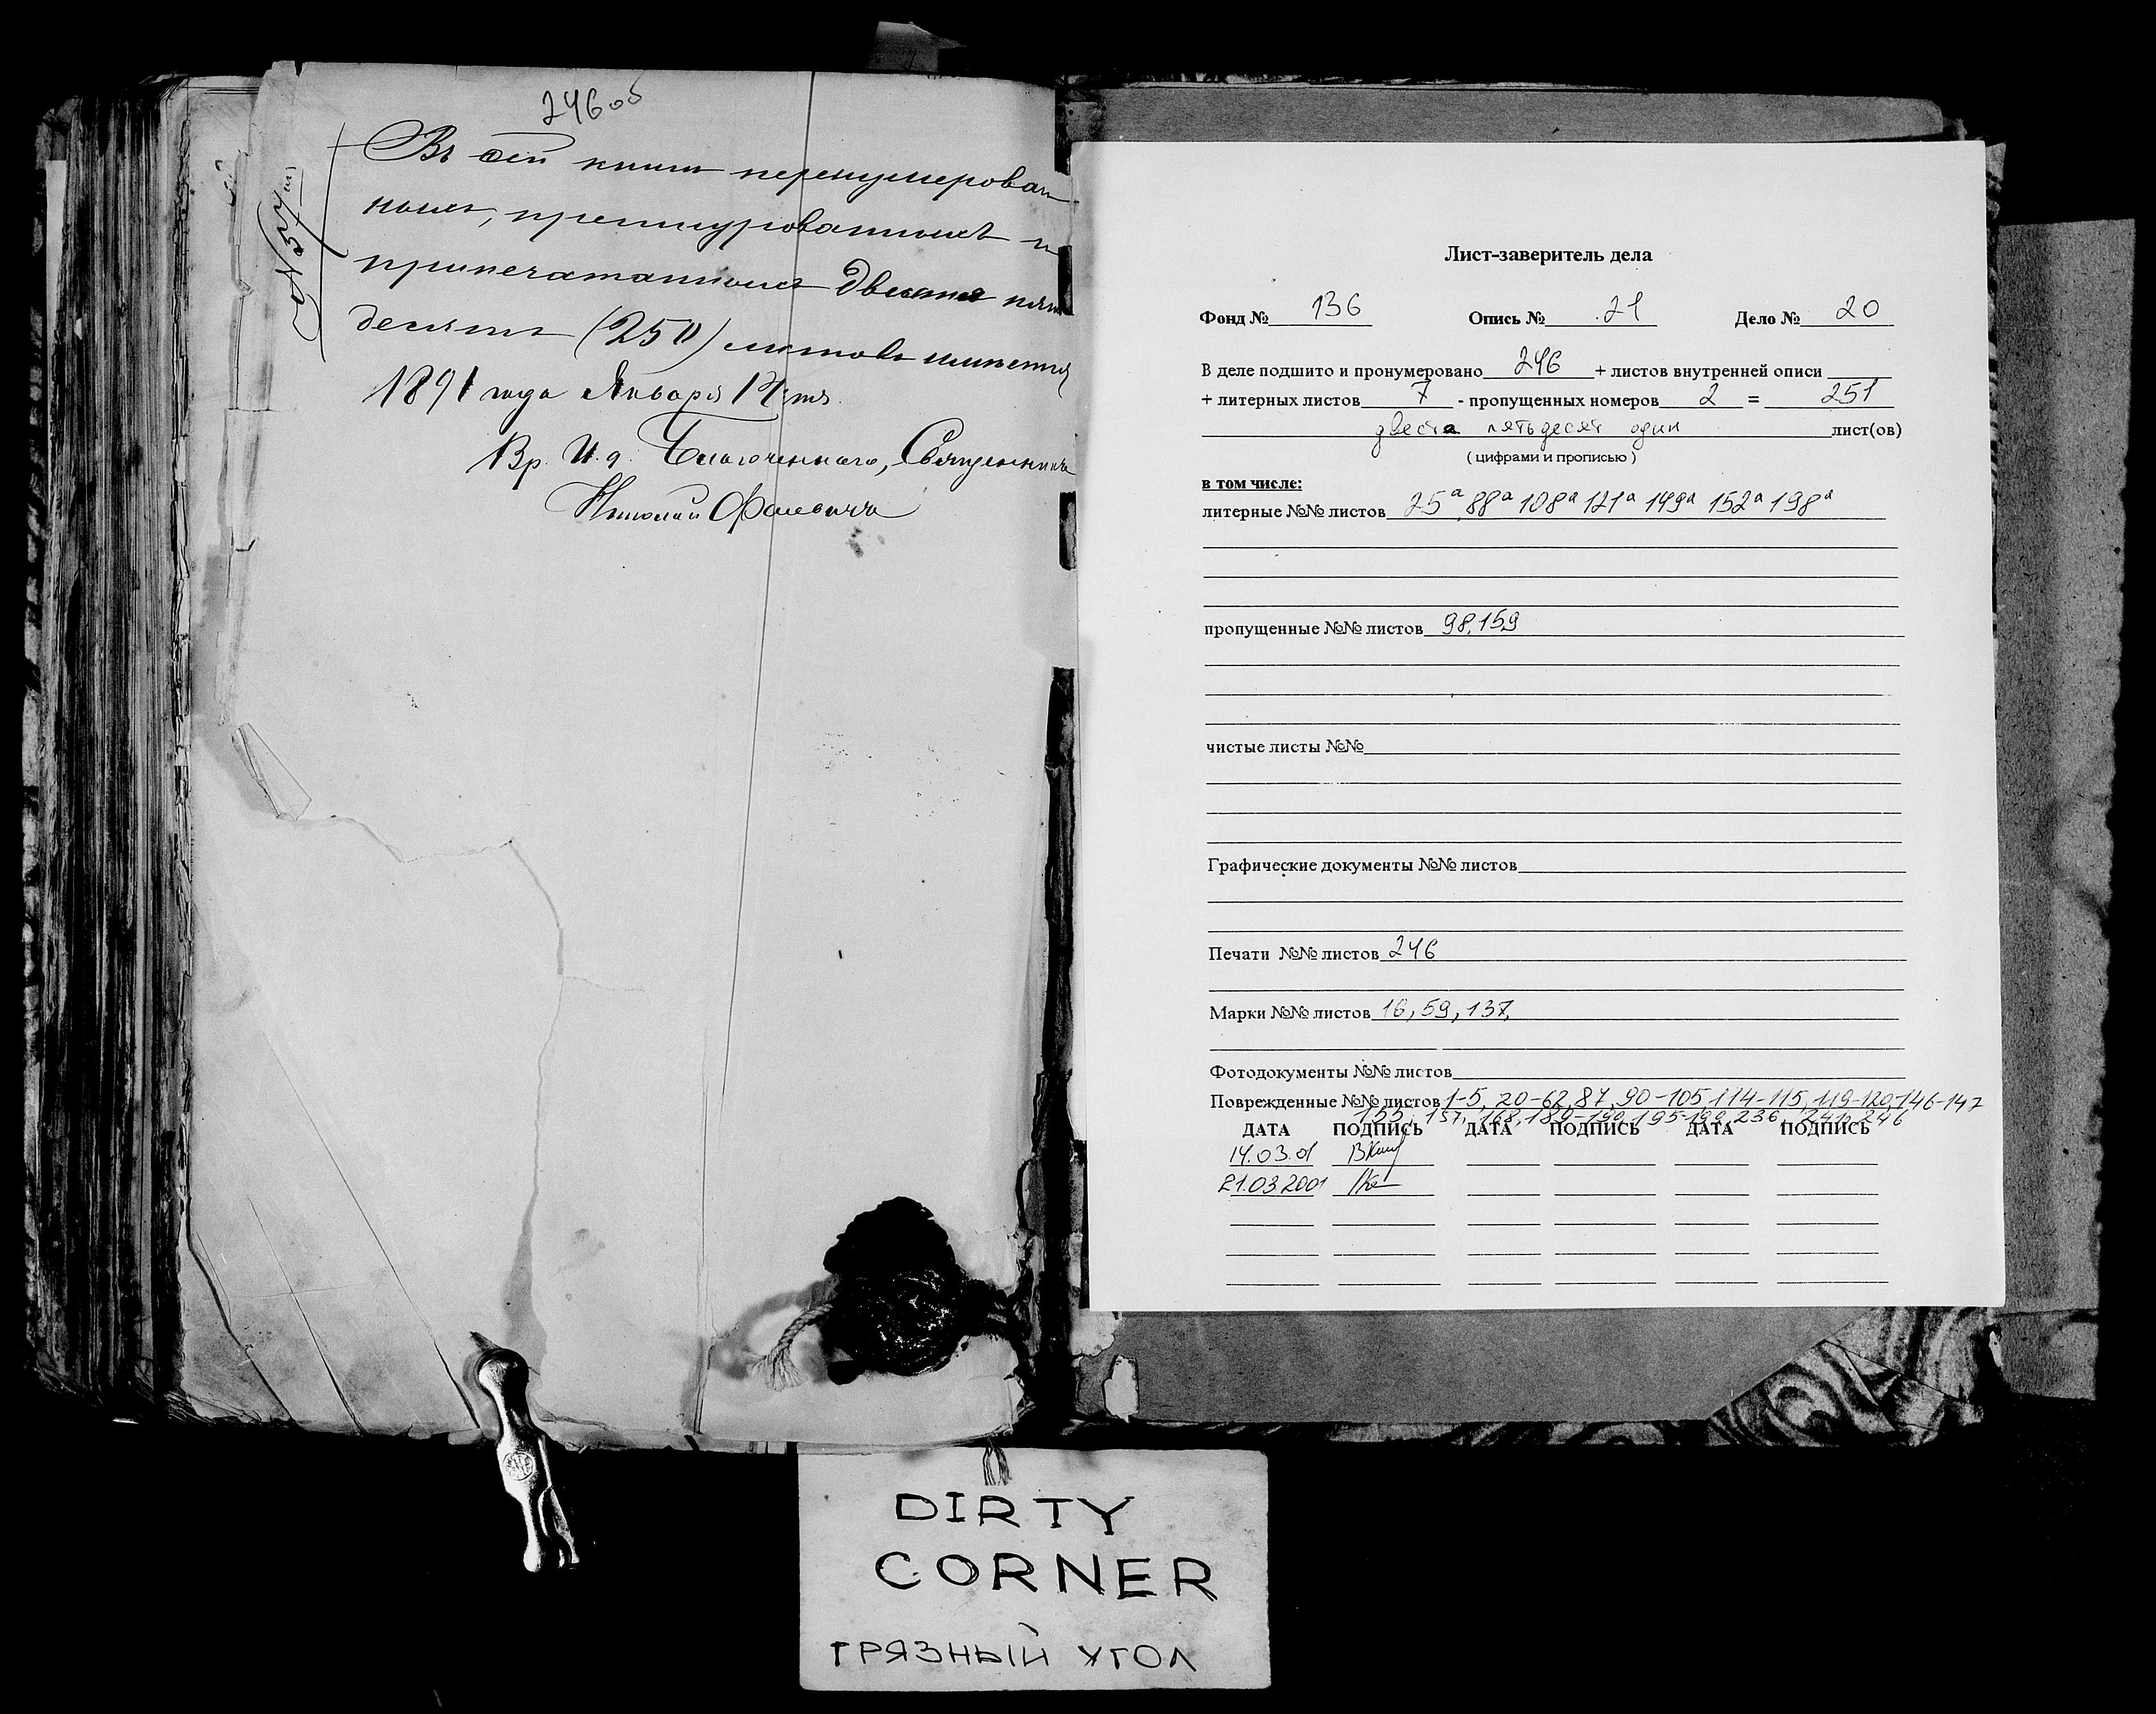 246 об
№ 57
Въ сей книгѣ перенумерован
ныхъ, прошнурованныхъ и
припечатанныхъ двѣсти пять
десятъ (250) листовъ имѣется
1891 года Января
Вр. И. д. Благочиннаго, Священникъ
Николай
Лист-заверитель дела
Фонд № 136 Опись № 21 Дело № 20
В деле подшито и пронумеровано 246 + листов внутренней описи
+ литерных листов 7 - пропущенных номеров 2 = 251
двести пятьдесят один лист(ов)
( цифрами и прописью )
в том числе:
литерные №№ листов 25а, 88а 108а 121а 149а 152а 198а
пропущенные №№ листов 98, 159
чистые листы №№
Графические документы №№ листов
Печати №№ листов 246
Марки №№ листов 16, 59, 137,
Фотодокументы №№ листов
Поврежденные №№ листов 1-5, 20-62, 87, 90-105 114-115, 119-120, 146-147
236 246
ДАТА ПОДПИСЬ ДАТА ПОДПИСЬ ДАТА ПОДПИСЬ
14.03.01
21.03 2001
DIRTY
CORNER
ГРЯЗНЫЙ УГОЛ